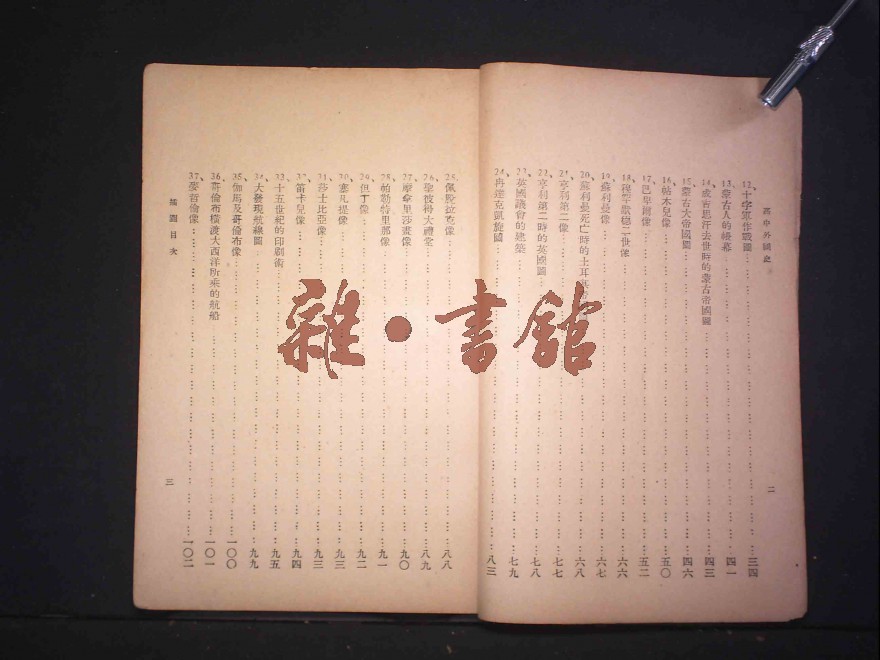 高中外國史
二
12、十字軍作戰圖……三四
13、蒙古人的帳幕……四一
14、成吉思汗去世時的蒙古帝國圖……四三
15、蒙古大帝國圖……四六
16、帖木兒像……五〇
17、巴卑爾像……五二
18、二世像……六六
19、蘇利曼像……六七
20、蘇利曼死亡時的土耳……六八
21、亨利第二像……七七
22、亨利第二時的英國圖……七八
23、英國議會的建築……七九
24、冉達克凱旋圖……八三
25、佩脫拉克像……八八
26、聖彼得大禮堂……八九
27、摩拿里莎畫像……九〇
28、帕勒特里那像……九一
29、但丁像……九二
30、塞凡提像……九三
31、莎士比亞像……九三
32、笛卡兒像……九四
33、十五世紀的印刷術……九五
34、大發現航線圖……九九
35、伽馬及哥倫布像……一〇〇
36、哥倫布橫渡大西洋所乘的航船……一〇一
37、麥哲倫像……一〇二
插圖目次
三
雜·書館